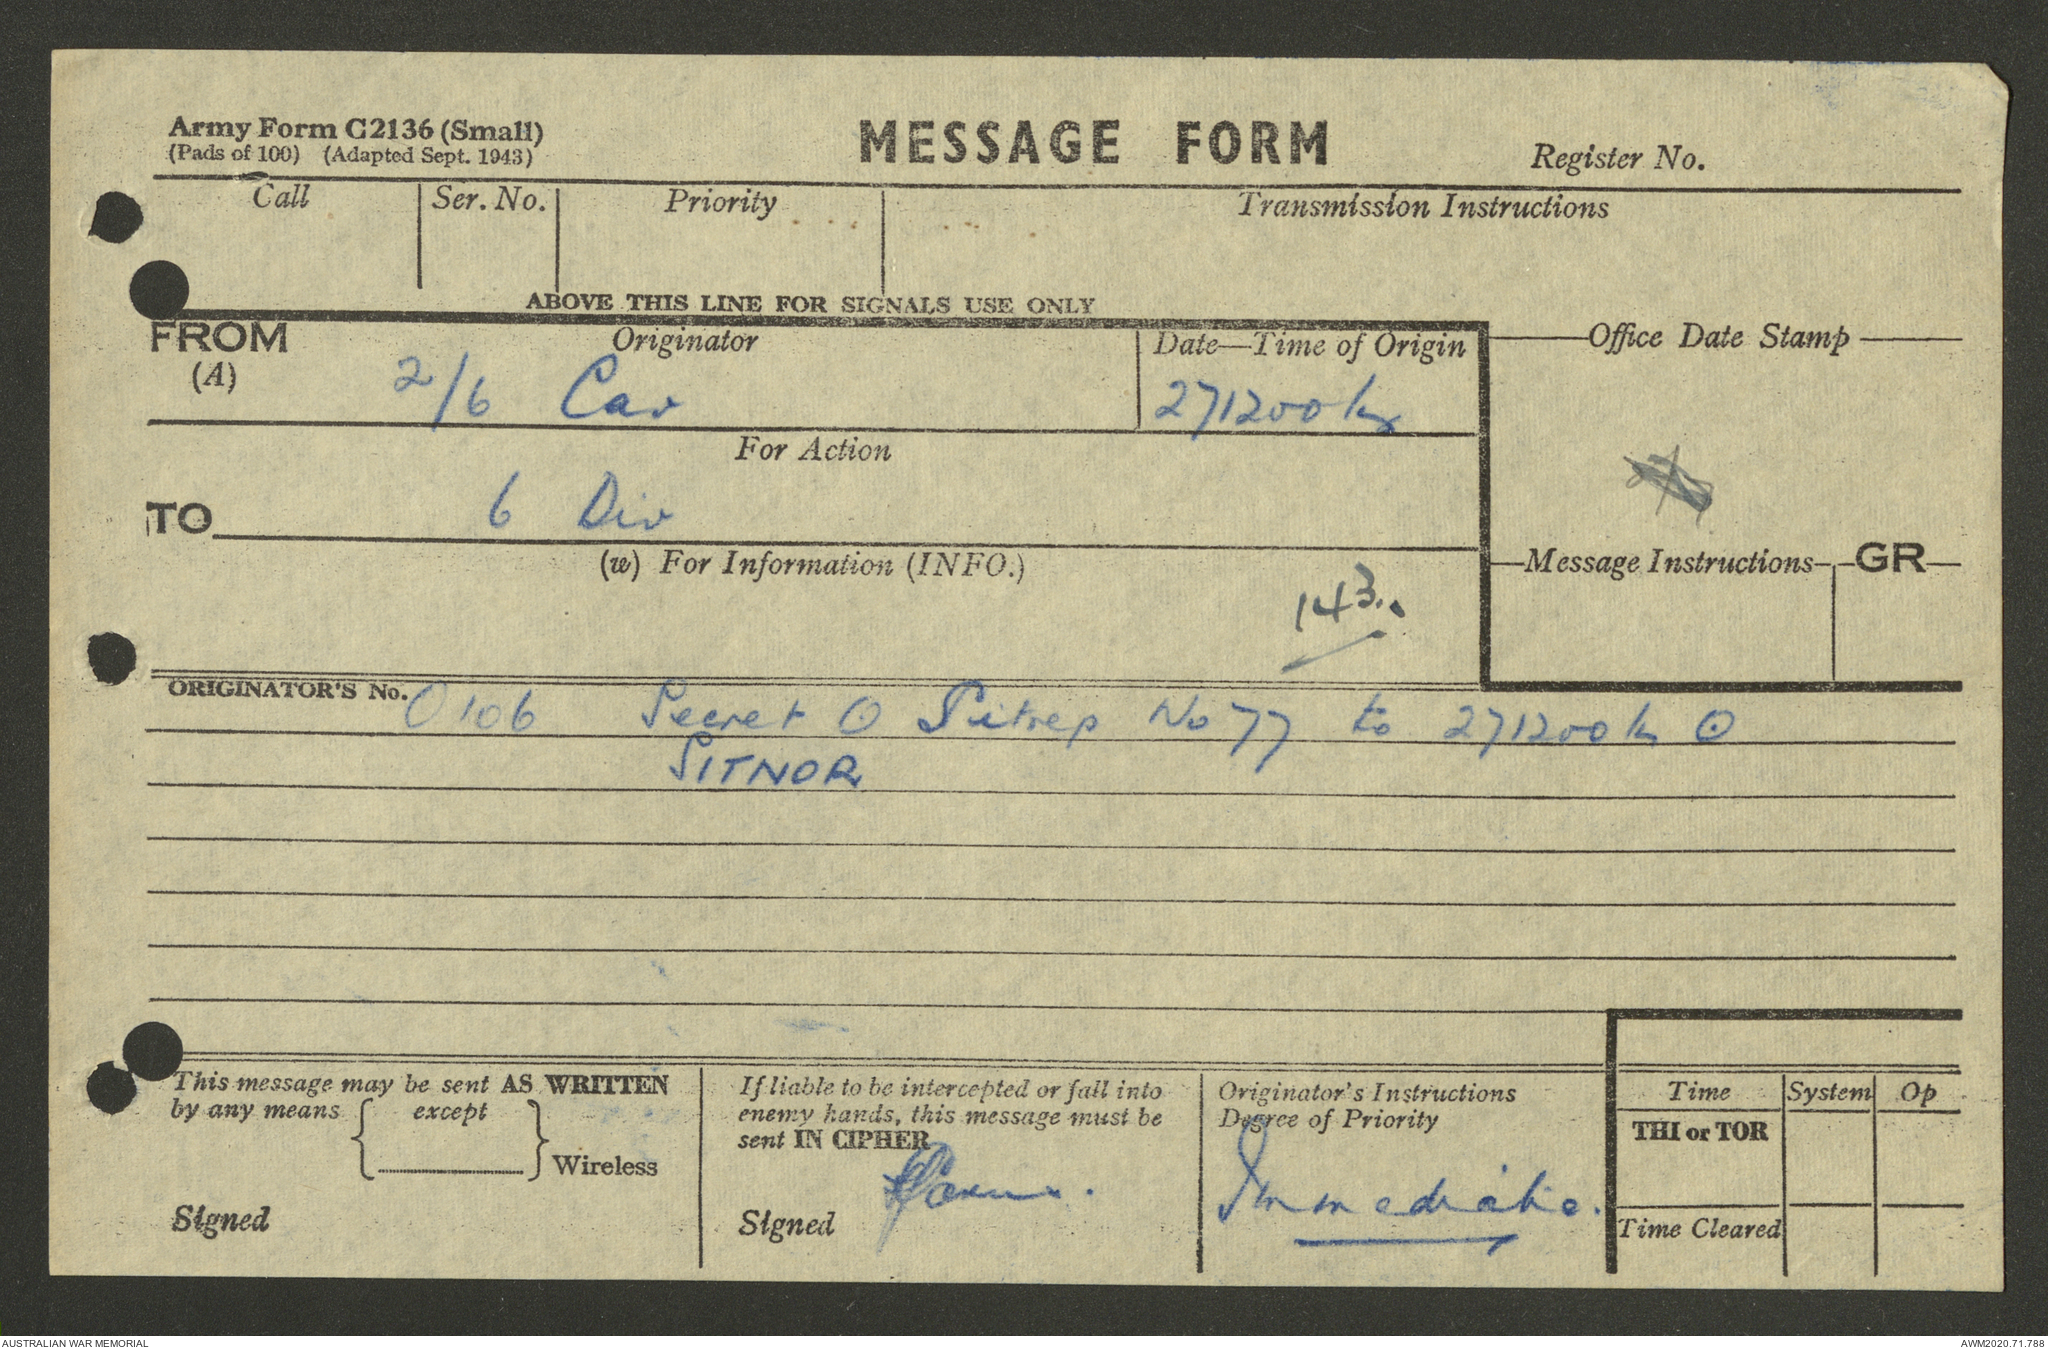 Army Form C2136 (Small)
(Pads of 100) (Adapted Sept. 1943)
MESSAGE FORM
Register No.
Call
Ser. No.
Priority
Transmission Instructions
ABOVE THIS LINE FOR SIGNALS USE ONLY
FROM
(A)
Originator
2/6 Cav
Date—Time of Origin
271200k
Office Date Stamp
For Action
TO
6 Div
(w) For Information (INFO.)
143
Message Instructions
GR
ORIGINATOR'S No.
O106 Secret O Sitrep No 77 to 271200k O
SITNOR
This message may be sent AS WRITTEN
by any means { except }
Wireless
Signed
If liable to be intercepted or fall into
enemy hands, this message must be
sent IN CIPHER
Signed
Originator's Instructions
Degree of Priority
Immediate.
Time
System
Op
THI or TOR
Time Cleared
AUSTRALIAN WAR MEMORIAL
AWM2020.71.788